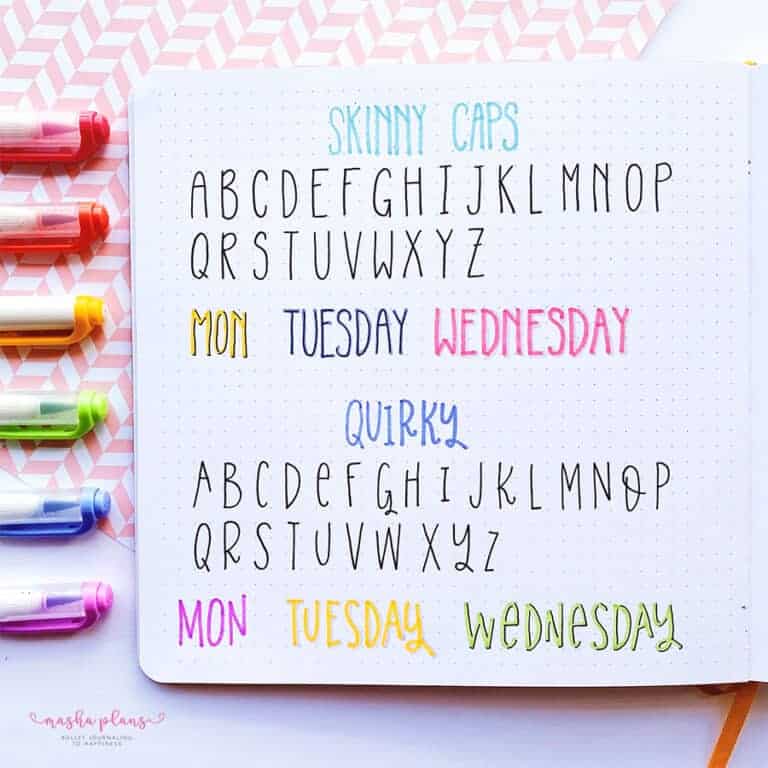 SKINNY CAPS
ABCDEFGHIJKLMNOP
QRSTUVWXYZ
MON TUESDAY WEDNESDAY
QUIRKY
ABCDeFGHIJKLMNOP
QRSTUVWXYZ
MON TUESDAY WeDNeSDAY
masha plans
BULLET JOURNALING
TO HAPPINESS